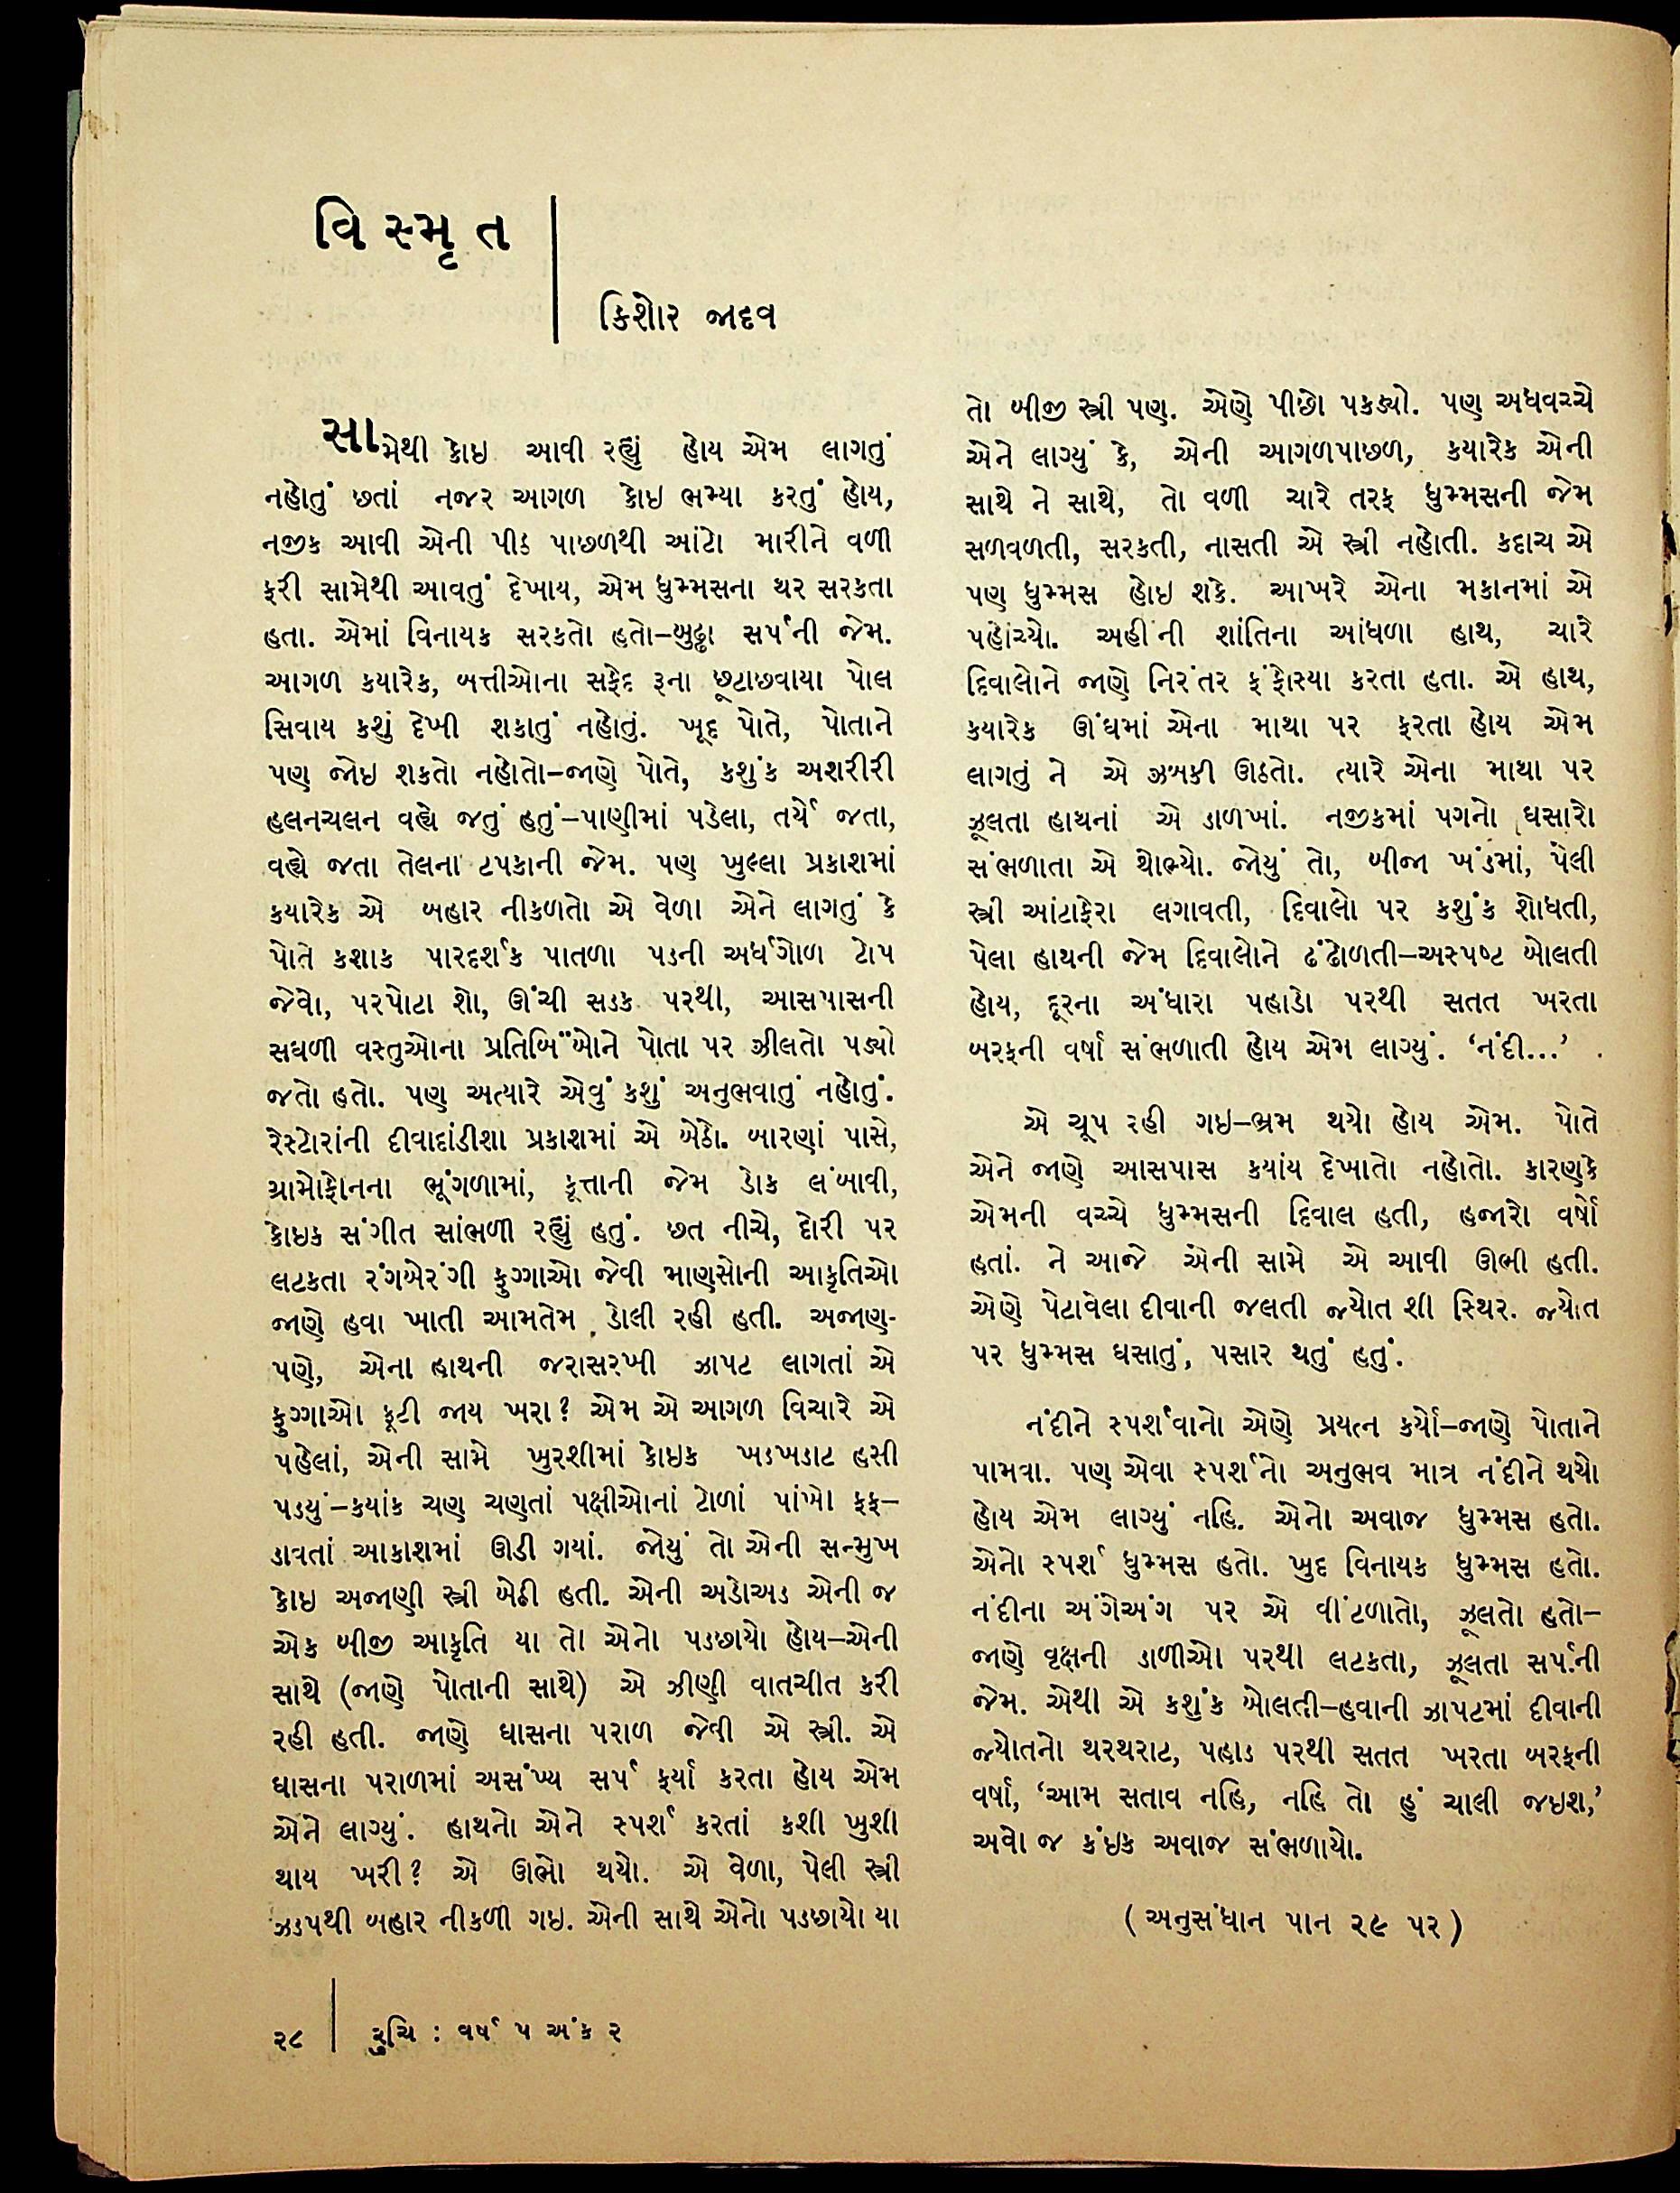 વિસ્મૃત
કિશોર જાદવ
સામેથી કોઇ આવી રહ્યું હોય એમ લાગતું
નહોતું છતાં નજર આગળ કોઇ ભમ્યા કરતું હોય,
નજીક આવી એની પીઠ પાછળથી આંટો મારીને વળી
ફરી સામેથી આવતું દેખાય, એમ ધુમ્મસના થર સરકતા
હતા. એમાં વિનાયક સરકતો હતો–બુઢ્ઢા સર્પની જેમ.
આગળ કયારેક, બત્તીઓના સફેદ રૂના છૂટાછવાયા પોલ
સિવાય કશું દેખી શકાતું નહોતું. ખૂદ પોતે, પોતાને
પણ જોઇ શકતો નહોતો–જાણે પોતે, કશુંક અશરીરી
હલનચલન વહ્યે જતું હતું–પાણીમાં પડેલા, તર્યે જતા,
વહ્યે જતા તેલના ટપકાની જેમ. પણ ખુલ્લા પ્રકાશમાં
કયારેક એ બહાર નીકળતો એ વેળા એને લાગતું કે
પોતે કશાક પારદર્શક પાતળા પડની અર્ધગોળ ટોપ
જેવો, પરપોટા શો, ઊંચી સડક પરથી, આસપાસની
સઘળી વસ્તુઓના પ્રતિબિંબોને પોતા પર ઝીલતો પડ્યો
જતો હતો. પણ અત્યારે એવું કશું અનુભવાતું નહોતું.
રેસ્ટોરાંની દીવાદાંડીશા પ્રકાશમાં એ બેઠો. બારણાં પાસે,
ગ્રામોફોનના ભૂંગળામાં, કૂત્તાની જેમ ડોક લંબાવી,
કોઇક સંગીત સાંભળી રહ્યું હતું. છત નીચે, દોરી પર
લટકતા રંગબેરંગી ફુગ્ગાઓ જેવી માણસોની આકૃતિઓ
જાણે હવા ખાતી આમતેમ ડોલી રહી હતી. અજાણ-
પણે, એના હાથની જરાસરખી ઝાપટ લાગતાં એ
ફુગ્ગાઓ ફૂટી જાય ખરા? એમ એ આગળ વિચારે એ
પહેલાં, એની સામે ખુરશીમાં કોઇક ખડખડાટ હસી
પડયું–કયાંક ચણ ચણતાં પક્ષીઓનાં ટોળાં પાંખો ફફ–
ડાવતાં આકાશમાં ઊડી ગયાં. જોયું તો એની સન્મુખ
કોઇ અજાણી સ્ત્રી બેઠી હતી. એની અડોઅડ એની જ
એક બીજી આકૃતિ યા તો એનો પડછાયો હોય–એની
સાથે (જાણે પોતાની સાથે) એ ઝીણી વાતચીત કરી
રહી હતી. જાણે ઘાસના પરાળ જેવી એ સ્ત્રી. એ
ઘાસના પરાળમાં અસંખ્ય સર્પ ફર્યા કરતા હોય એમ
એને લાગ્યું. હાથનો એને સ્પર્શ કરતાં કશી ખુશી
થાય ખરી? એ ઊભો થયો. એ વેળા, પેલી સ્ત્રી
ઝડપથી બહાર નીકળી ગઇ. એની સાથે એનો પડછાયો યા
તો બીજી સ્ત્રી પણ. એણે પીછો પકડ્યો. પણ અધવચ્ચે
એને લાગ્યું કે, એની આગળપાછળ, કયારેક એની
સાથે ને સાથે, તો વળી ચારે તરફ ધુમ્મસની જેમ
સળવળતી, સરકતી, નાસતી એ સ્ત્રી નહોતી. કદાચ એ
પણ ધુમ્મસ હોઇ શકે. આખરે એના મકાનમાં એ
પહોંચ્યો. અહીંની શાંતિના આંધળા હાથ, ચારે
દિવાલોને જાણે નિરંતર ફંફોસ્યા કરતા હતા. એ હાથ,
કયારેક ઊંઘમાં એના માથા પર ફરતા હોય એમ
લાગતું ને એ ઝબકી ઊઠતો. ત્યારે એના માથા પર
ઝૂલતા હાથનાં એ ડાળખાં. નજીકમાં પગનો ઘસારો
સંભળાતા એ થોભ્યો. જોયું તો, બીજા ખંડમાં, પેલી
સ્ત્રી આંટાફેરા લગાવતી, દિવાલો પર કશુંક શોધતી,
પેલા હાથની જેમ દિવાલોને ઢંઢોળતી–અસ્પષ્ટ બોલતી
હોય, દૂરના અંધારા પહાડો પરથી સતત ખરતા
બરફની વર્ષા સંભળાતી હોય એમ લાગ્યું. ‘નંદી...’
એ ચૂપ રહી ગઇ–ભ્રમ થયો હોય એમ. પોતે
એને જાણે આસપાસ કયાંય દેખાતો નહોતો. કારણકે
એમની વચ્ચે ધુમ્મસની દિવાલ હતી, હજારો વર્ષો
હતાં. ને આજે એની સામે એ આવી ઊભી હતી.
એણે પેટાવેલા દીવાની જલતી જ્યોત શી સ્થિર. જ્યોત
પર ધુમ્મસ ઘસાતું, પસાર થતું હતું.
નંદીને સ્પર્શવાનો એણે પ્રયત્ન કર્યો–જાણે પોતાને
પામવા. પણ એવા સ્પર્શનો અનુભવ માત્ર નંદીને થયો
હોય એમ લાગ્યું નહિ. એનો અવાજ ધુમ્મસ હતો.
એનો સ્પર્શ ધુમ્મસ હતો. ખુદ વિનાયક ધુમ્મસ હતો.
નંદીના અંગેઅંગ પર એ વીંટળાતો, ઝૂલતો હતો–
જાણે વૃક્ષની ડાળીઓ પરથી લટકતા, ઝૂલતા સર્પની
જેમ. એથી એ કશુંક બોલતી–હવાની ઝાપટમાં દીવાની
જ્યોતનો થરથરાટ, પહાડ પરથી સતત ખરતા બરફની
વર્ષા, ‘આમ સતાવ નહિ, નહિ તો હું ચાલી જઇશ,’
અવો જ કંઇક અવાજ સંભળાયો.
(અનુસંધાન પાન ૨૯ પર)
૨૮ રુચિ : વર્ષ ૫ અંક ૨